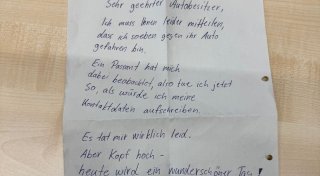 Sehr geehrter Autobesitzer,
Ich muss Ihnen leider mitteilen,
dass ich soeben gegen ihr Auto
gefahren bin.
Ein Passant hat mich
dabei beobachtet, also tue ich jetzt
so, als würde ich meine
Kontaktdaten aufschreiben.
Es tat mir wirklich leid.
Aber Kopf hoch -
heute wird ein wunderschöner Tag!